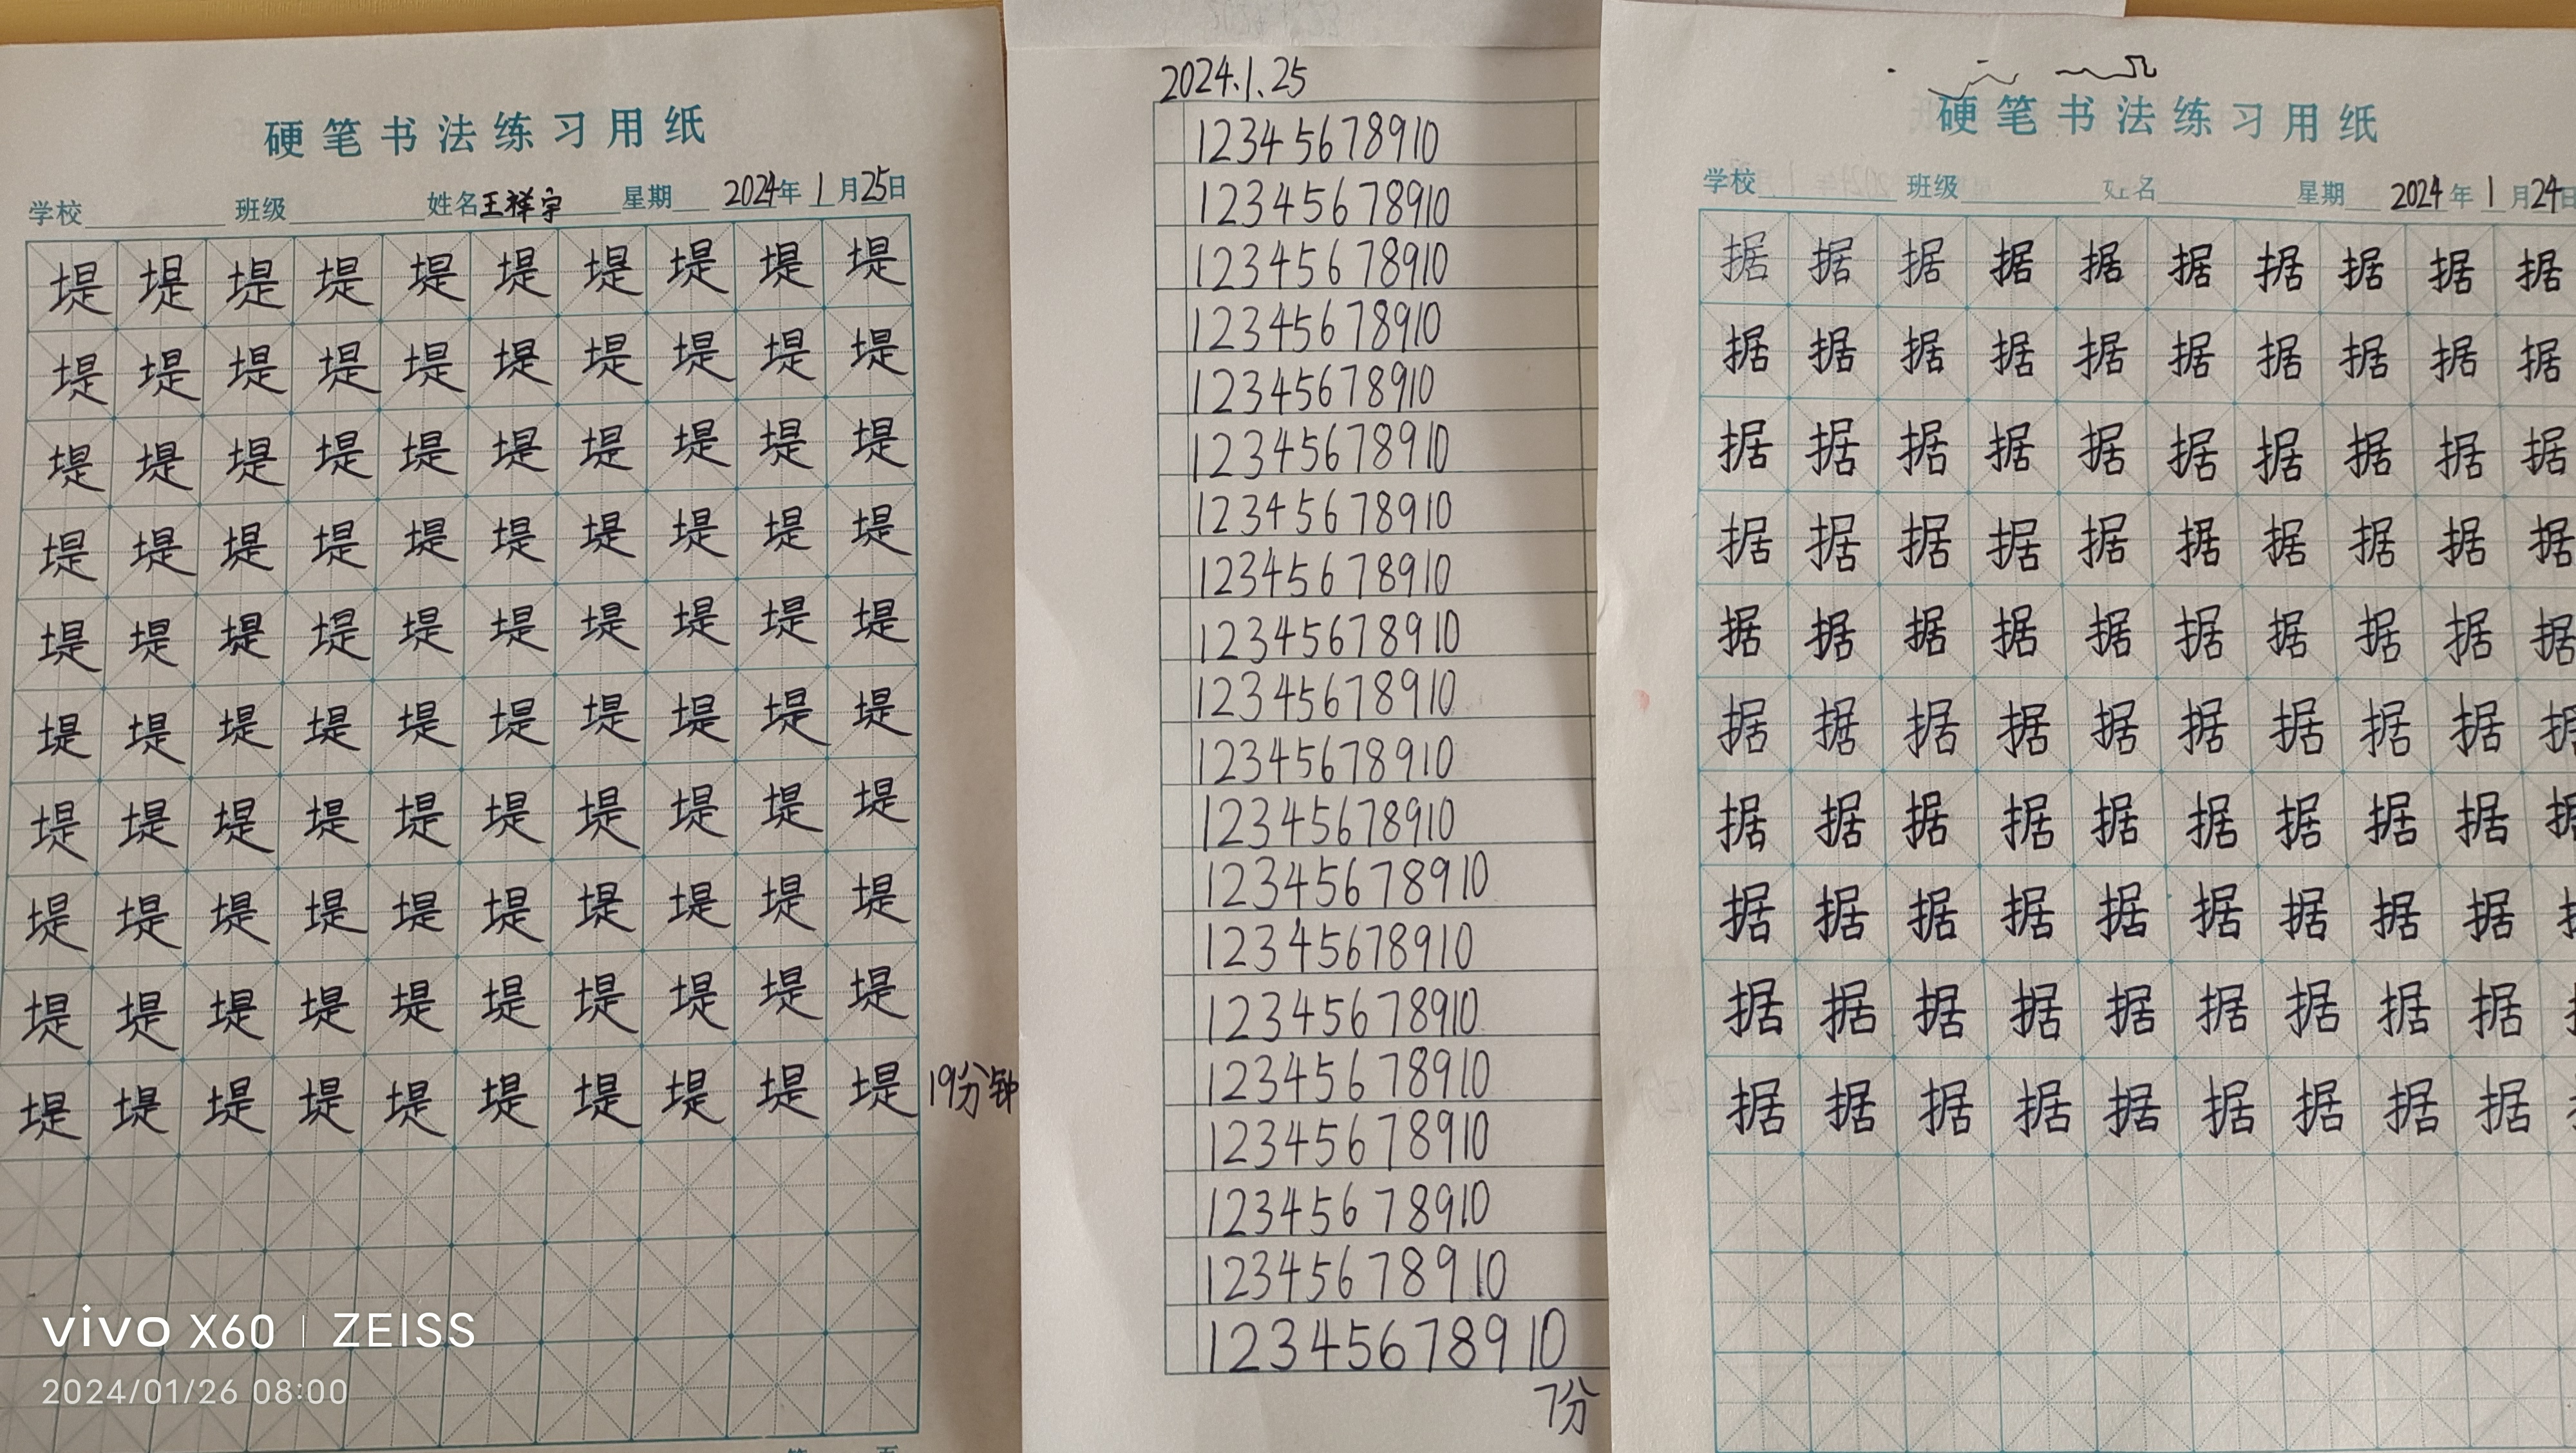 硬笔书法练习用纸
学校 班级 姓名王祥宇 星期 2024年1月25日
堤堤堤堤堤堤堤堤堤堤
堤堤堤堤堤堤堤堤堤堤
堤堤堤堤堤堤堤堤堤堤
堤堤堤堤堤堤堤堤堤堤
堤堤堤堤堤堤堤堤堤堤
堤堤堤堤堤堤堤堤堤堤
堤堤堤堤堤堤堤堤堤堤
堤堤堤堤堤堤堤堤堤堤
堤堤堤堤堤堤堤堤堤堤
堤堤堤堤堤堤堤堤堤堤 19分钟
vivo X60 | ZEISS
2024/01/26 08:00
2024.1.25
12345678910
12345678910
12345678910
12345678910
12345678910
12345678910
12345678910
12345678910
12345678910
12345678910
12345678910
12345678910
12345678910
12345678910
12345678910
12345678910
12345678910
12345678910
12345678910
12345678910
7分
硬笔书法练习用纸
学校 班级 姓名 星期 2024年1月24日
据据据据据据据据据据
据据据据据据据据据据
据据据据据据据据据据
据据据据据据据据据据
据据据据据据据据据据
据据据据据据据据据据
据据据据据据据据据据
据据据据据据据据据
据据据据据据据据据
据据据据据据据据据